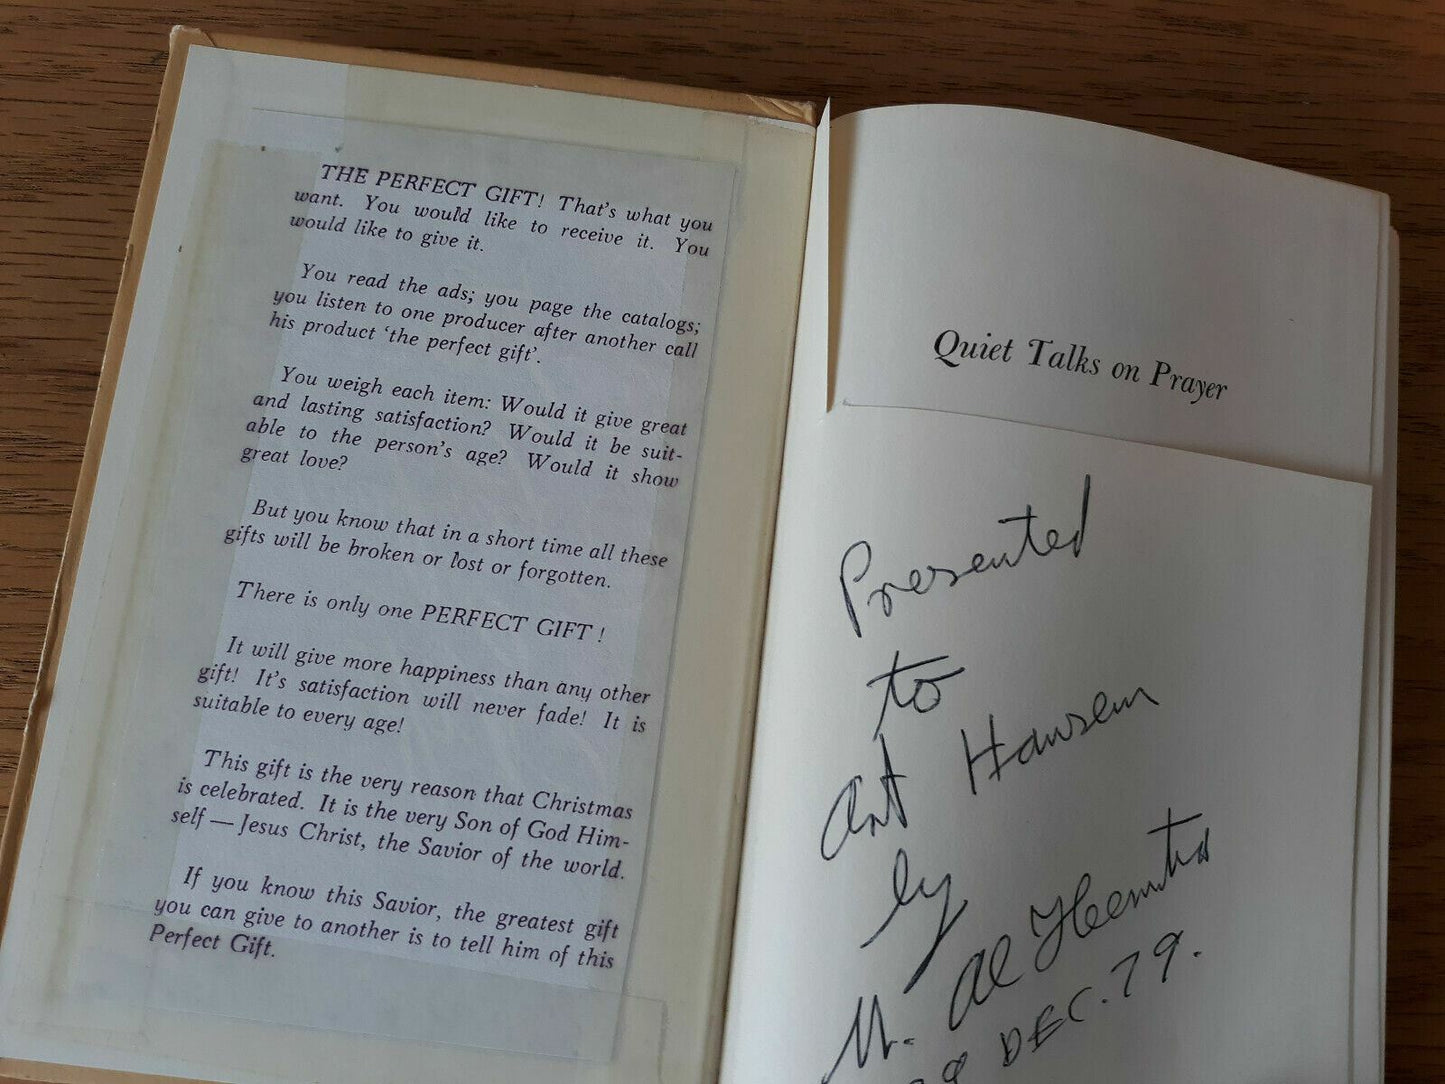 THE PERFECT GIFT! That's what you
want. You would like to receive it. You
would like to give it.
You read the ads; you page the catalogs;
you listen to one producer after another call
his product 'the perfect gift'.
You weigh each item: Would it give great
and lasting satisfaction? Would it be suit-
able to the person's age? Would it show
great love?
But you know that in a short time all these
gifts will be broken or lost or forgotten.
There is only one PERFECT GIFT !
It will give more happiness than any other
gift! It's satisfaction will never fade! It is
suitable to every age!
This gift is the very reason that Christmas
is celebrated. It is the very Son of God Him-
self — Jesus Christ, the Savior of the world.
If you know this Savior, the greatest gift
you can give to another is to tell him of this
Perfect Gift.
Quiet Talks on Prayer
Presented
to
Art Hansen
by
Al
DEC. 79.